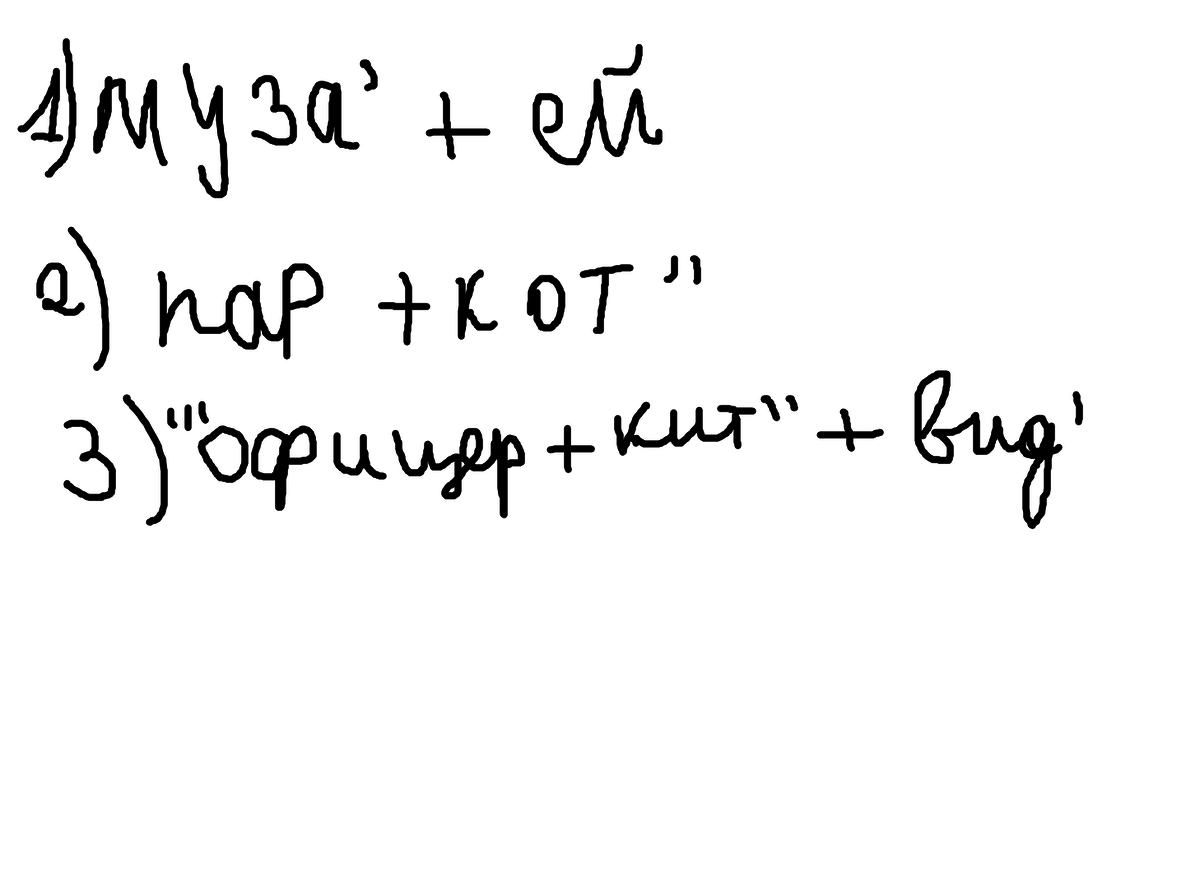 1) муза' + ей
2) пар + кот''
3) '''офицер + кит'' + вид'